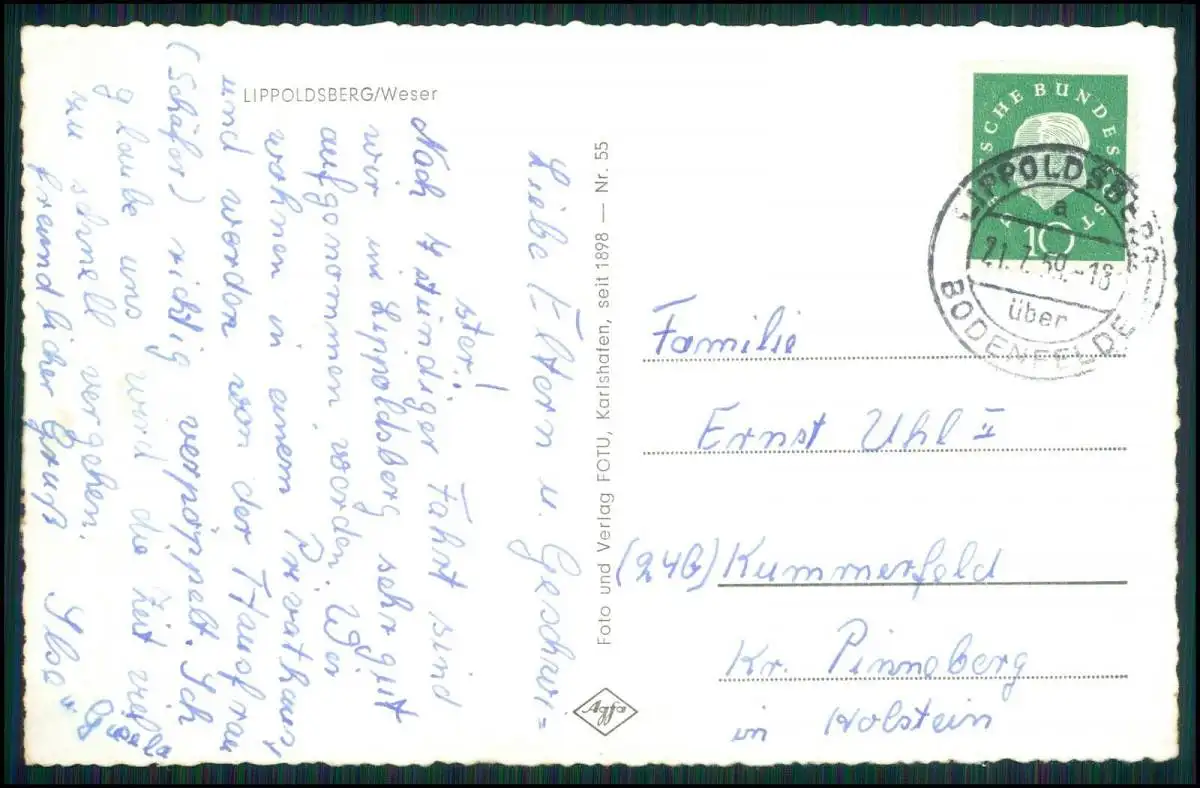 LIPPOLDSBERG/Weser
Liebe Eltern u. Geschwi=
ster!
Nach 4 stündiger Fahrt sind
wir in Lippoldsberg sehr gut
aufgenommen worden. Wir
wohnen in einem Privathaus,
und werden von der Hausfrau
(Schäfer) richtig verpöppelt. Ich
glaube uns wird die Zeit viel
zu schnell vergehen.
freundlicher Gruß Ilse
u Gisela
Foto und Verlag FOTU, Karlshafen, seit 1898 — Nr. 55
Agfa
DEUTSCHE BUNDESPOST
10
LIPPOLDSBERG
a
21.7.59.-18
über
BODENFELDE
Familie
Ernst Uhl II
(24b) Kummerfeld
Kr. Pinneberg
in Holstein